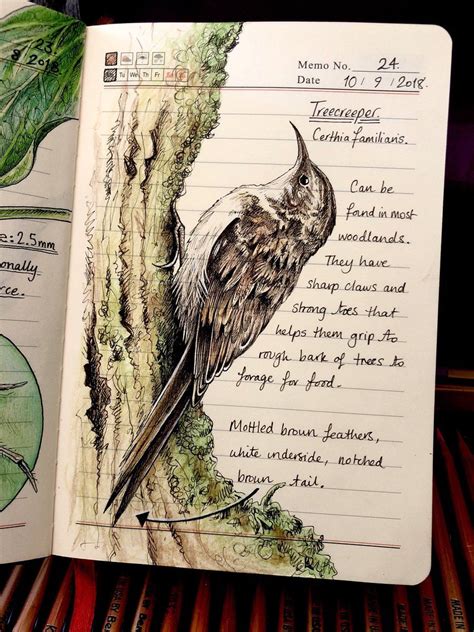 23.
8 2018.
e: 2.5mm
onally
rce.
Tu We Th Fr Sa
Memo No. 24.
Date 10/9/2018.
Treecreeper
Certhia familians.
Can be
found in most
woodlands.
They have
sharp claws and
strong toes that
helps them grip to
rough bark of trees to
forage for food.
Mottled brown feathers,
white underside, notched
brown tail.